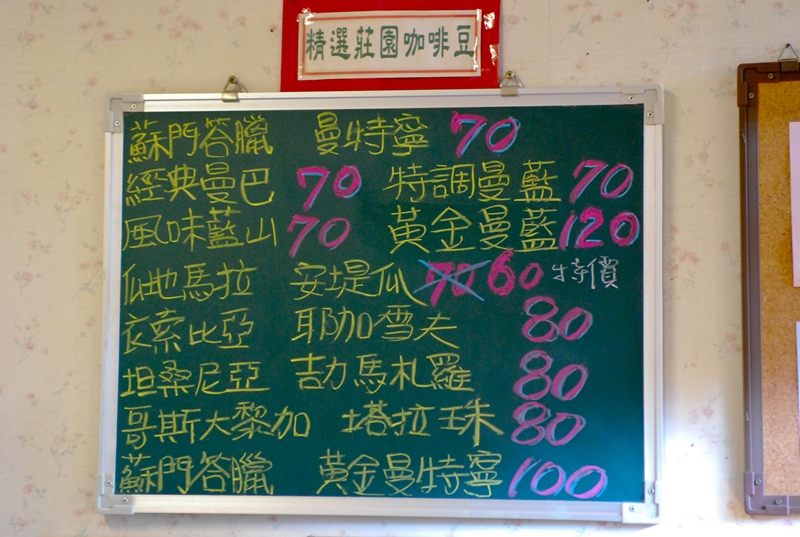 精選莊園咖啡豆
蘇門答臘 曼特寧 70
經典曼巴 70 特調曼藍 70
風味藍山 70 黃金曼藍 120
瓜地馬拉 安堤瓜 70 60 特價
衣索比亞 耶加雪夫 80
坦桑尼亞 吉力馬札羅 80
哥斯大黎加 塔拉珠 80
蘇門答臘 黃金曼特寧 100